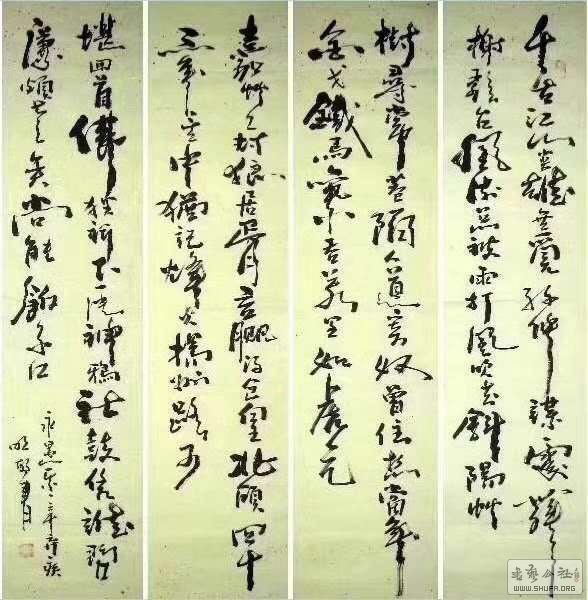 千古江山英雄無覓孫仲謀處舞
榭歌台風流總被雨打風吹去斜陽草
樹尋常巷陌人道寄奴曾住想當年
金戈鐵馬氣吞萬里如虎元
嘉草草封狼居胥贏得倉皇北顧四十
三年望中猶記烽火揚州路可
堪回首佛狸祠下一片神鴉社鼓憑誰問
廉頗老矣尚能飯否
永遇樂 辛棄疾
书艺公社
WWW.SHUFA.ORG